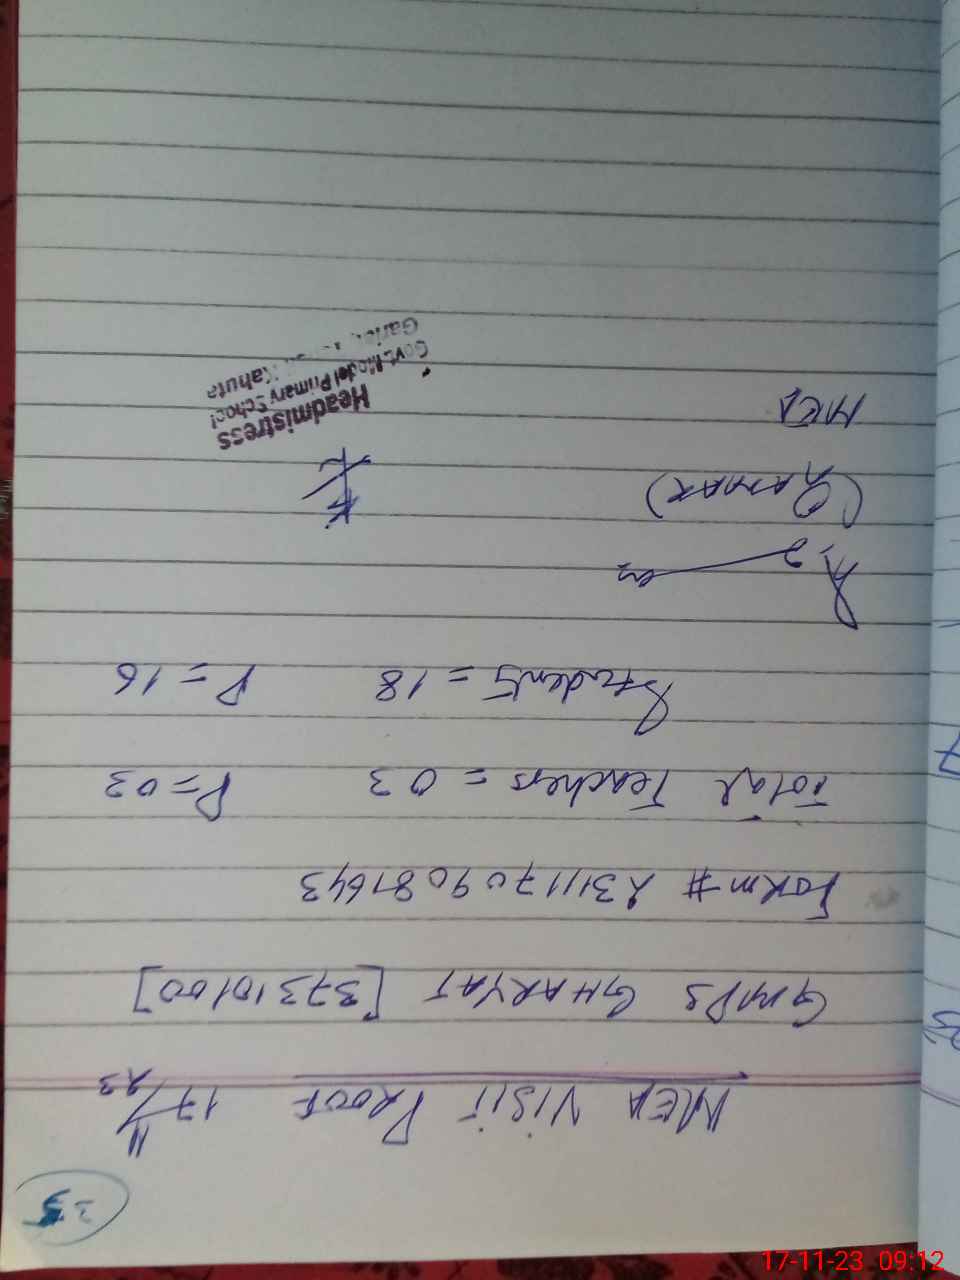 35
MEA VISIT PROOF 17/11/23
GMPS GHARYAT [37310100]
FORM # 231117 09081643
Total Teachers = 03 P=03
Students = 18 P=16
(QAMAR)
MEA
Headmistress
Govt. Model Primary School
Kahuta
17-11-23 09:12